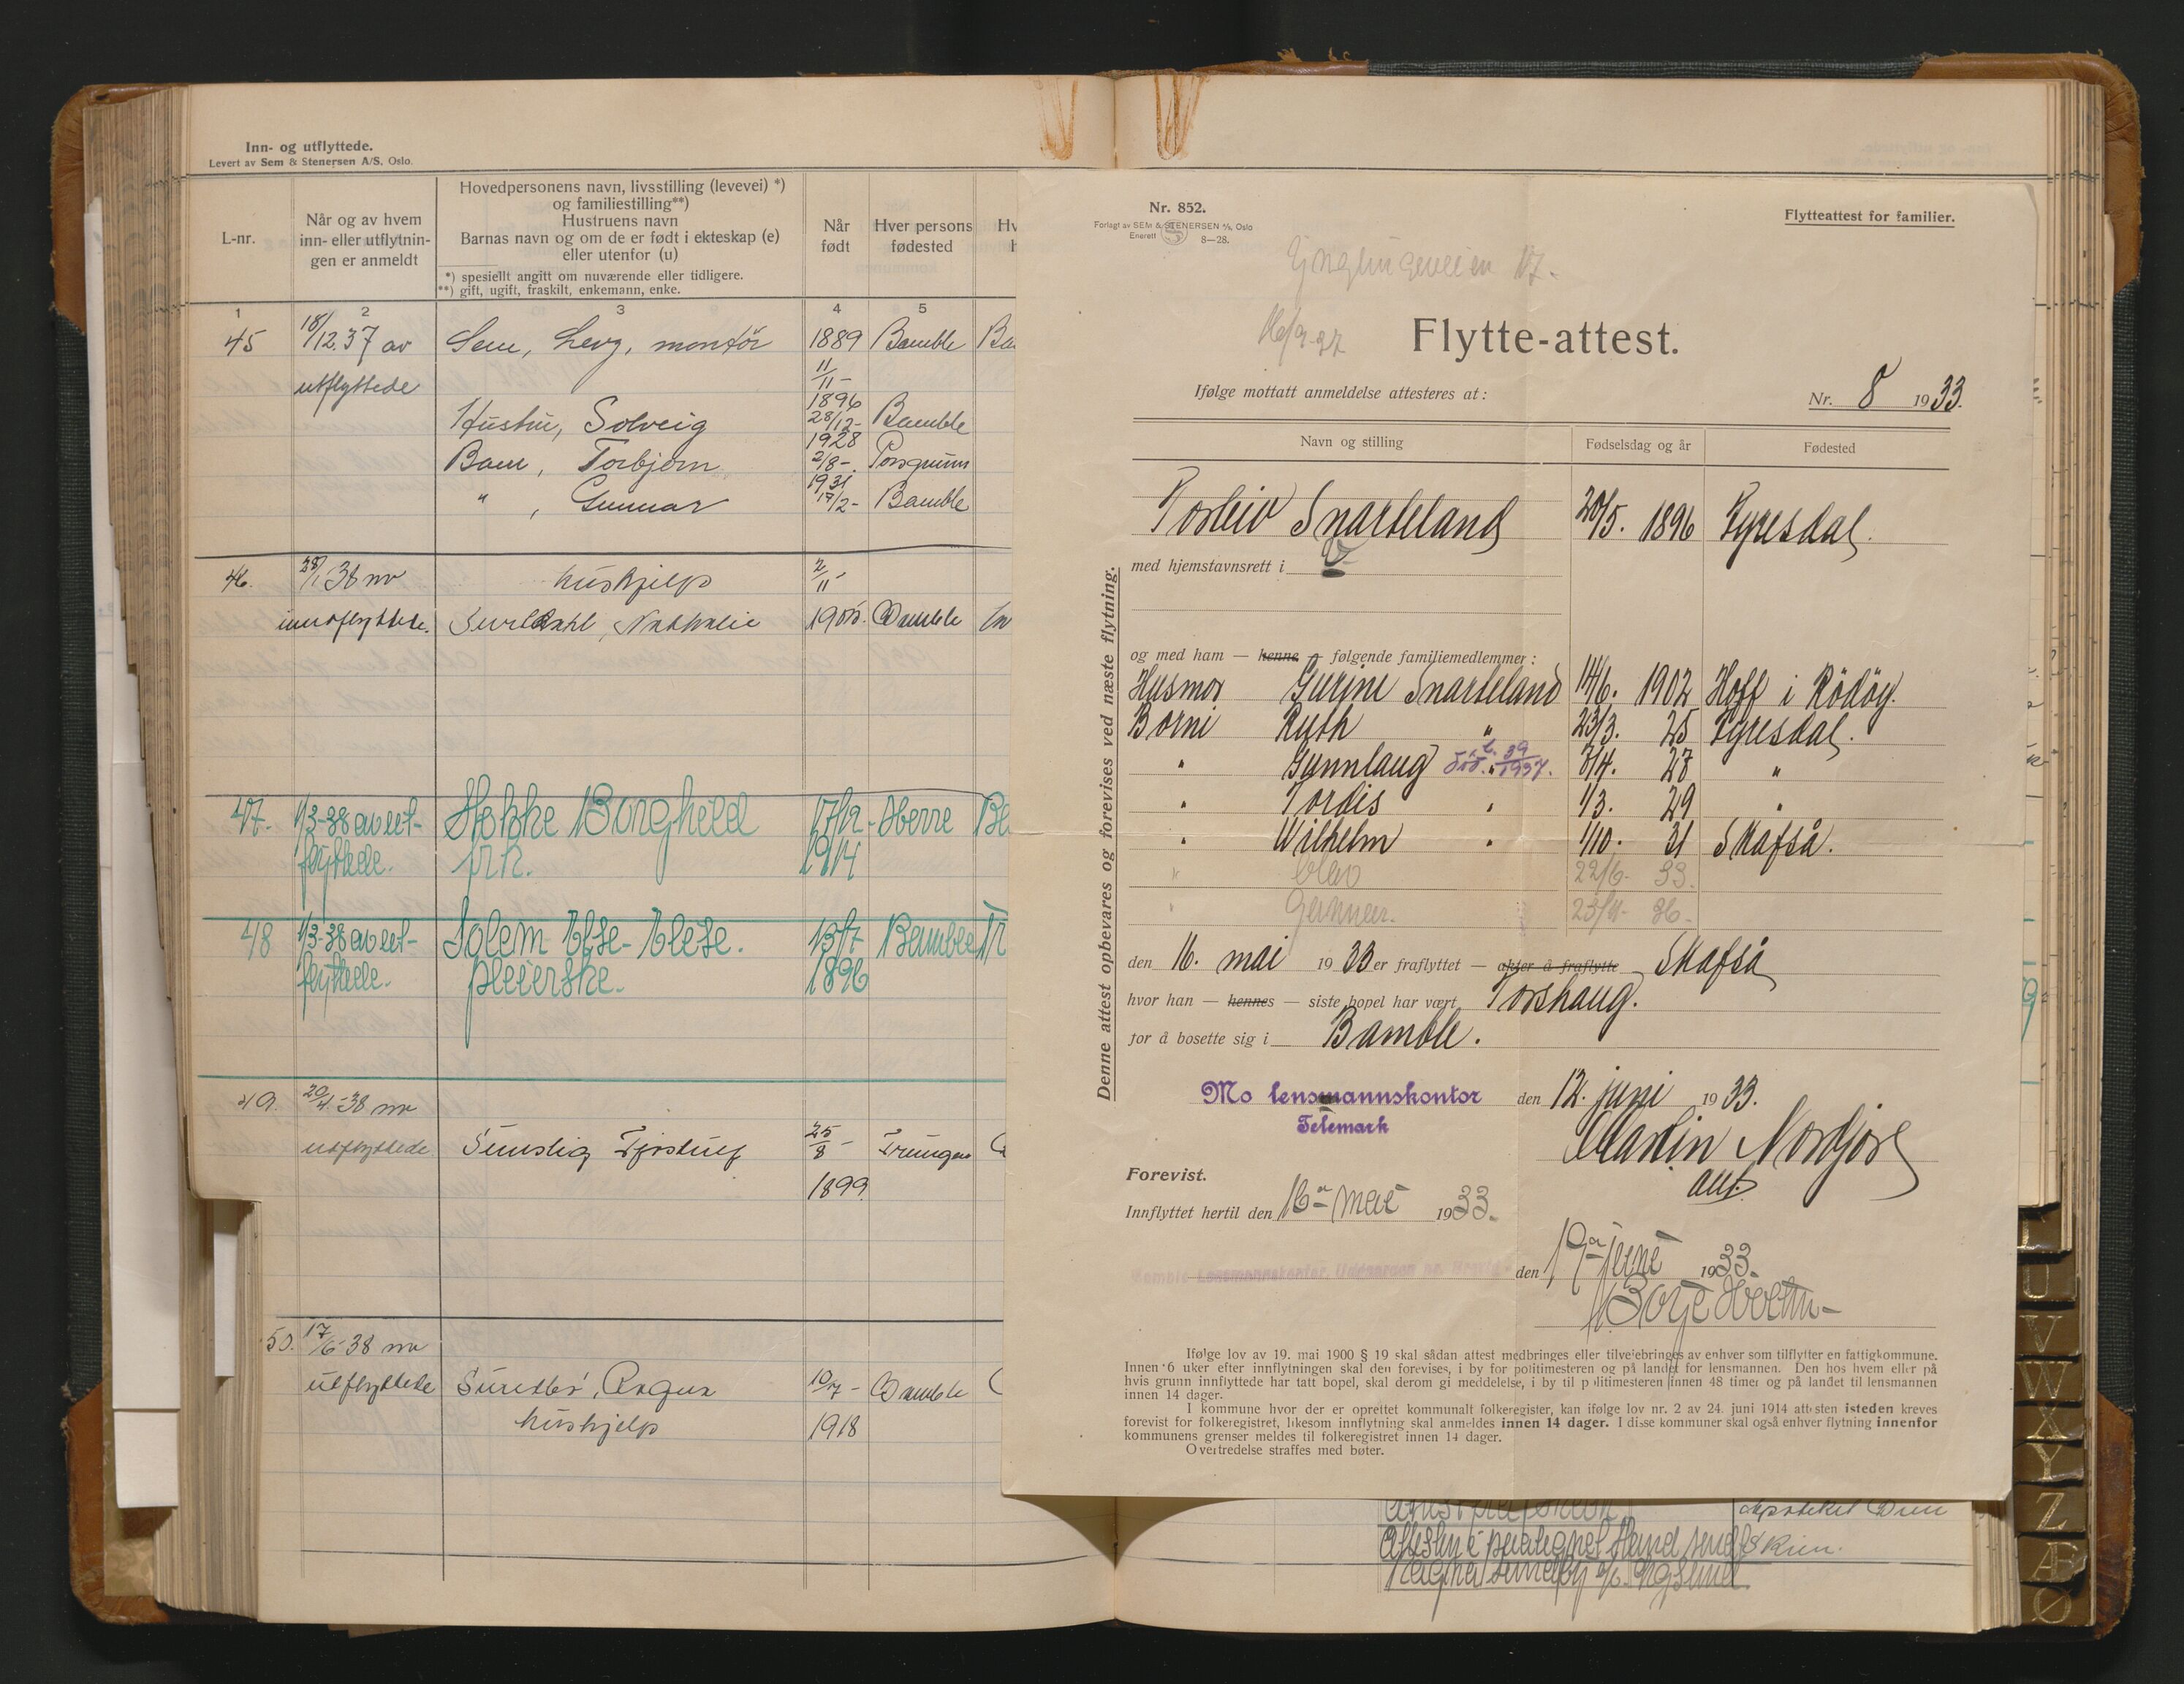 Inn- og utflyttede.
Levert av Sem & Stenersen A/S. Oslo.
L-nr.
Når og av hvem
inn- eller utflytnin-
gen er anmeldt
Hovedpersonens navn, livsstilling (levevei) *)
og familiestilling**)
Hustruens navn
Barnas navn og om de er født i ekteskap (e)
eller utenfor (u)
*) spesiellt angitt om nuværende eller tidligere.
**) gift, ugift, fraskilt, enkemann, enke.
Når
født
Hver persons
fødested
1 2 3 4 5
45 18/12.37 av Sem, montör 1889 Bamble Ba
utflyttede 11/11-
Hustru, Solveig 1896 28/12- Bamble
Barn, Torbjørn 1928 2/8-. Porsgrunn
" , Gunnar 1931 17/2- Bamble
46. 28/1-38 av hushjelp 2/11-
innflyttede. Nathalie Bamble
47. 1/3-38 av ut- Stokke Borghild 17/12- Herre Ba
flyttede. 1914
48 1/3-38 av ut- Solem Else-Elise. 13/7 Bamble
flyttede. pleierske. 1896
49. 20/4-38 av
utflyttede 25/8-
1899.
50. 17/6-38 av
utflyttede 10/7- Bamble
hushjelp 1918
Nr. 852.
Forlagt av SEM & STENERSEN A/S, Oslo
Enerett 8—28.
Flytteattest for familier.
17.
16/9-37
Flytte-attest.
Ifølge mottatt anmeldelse attesteres at:
Nr. 8 1933.
Navn og stilling
Fødselsdag og år
Fødested
Torleiv Snarteland 20/5. 1896 Fyresdal.
med hjemstavnsrett i
og med ham — henne — følgende familiemedlemmer:
Husmor Gurine Snarteland 14/6. 1902 Hoff i Rödöy.
Borni Ruth " 23/3. 25 Fyresdal.
" Gunnlaug " 3/4. 27 "
" Tordis " 1/3. 29 "
" Wilhelm " 1/10. 31 Skafså.
" Olav 22/6- 33.
" Gunnar. 23/4- 36-
den 16. mai 1933 er fraflyttet — akter å fraflytte Skafså
hvor han — hennes — siste bopel har vært Torshaug.
for å bosette sig i Bamble.
Mo lensmannskontor
Telemark
den 12. juni 1933.
Martin Nordjore
aut.
Forevist.
Innflyttet hertil den 16de mai 1933.
Bamble Lensmannskontor,
den 19de juni 1933.
Denne attest opbevares og forevises ved næste flytning.
Ifølge lov av 19. mai 1900 § 19 skal sådan attest medbringes eller tilveiebringes av enhver som tilflytter en fattigkommune.
Innen 6 uker efter innflytningen skal den forevises, i by for politimesteren og på landet for lensmannen. Den hos hvem eller på
hvis grunn innflyttede har tatt bopel, skal derom gi meddelelse, i by til politimesteren innen 48 timer og på landet til lensmannen
innen 14 dager.
I kommune hvor der er oprettet kommunalt folkeregister, kan ifølge lov nr. 2 av 24. juni 1914 attesten isteden kreves
forevist for folkeregistret, likesom innflytning skal anmeldes innen 14 dager. I disse kommuner skal også enhver flytning innenfor
kommunens grenser meldes til folkeregistret innen 14 dager.
Overtredelse straffes med bøter.
Skien.
U
V
W
X
Y
Z
Æ
Ø